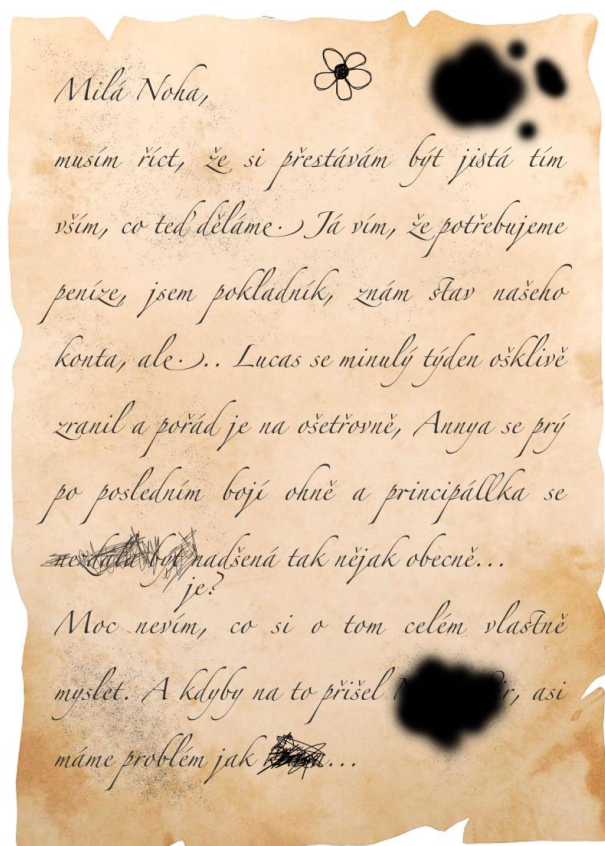 Milá Noha,
musím říct, že si přestávám být jistá tím
vším, co teď děláme. Já vím, že potřebujeme
peníze, jsem pokladník, znám stav našeho
konta, ale... Lucas se minulý týden ošklivě
zranil a pořád je na ošetřovně, Annya se prý
po posledním bojí ohně a principállka se
nadšená tak nějak obecně...
je?
Moc nevím, co si o tom celém vlastně
myslet. A kdyby na to přišel asi
máme problém jak ...